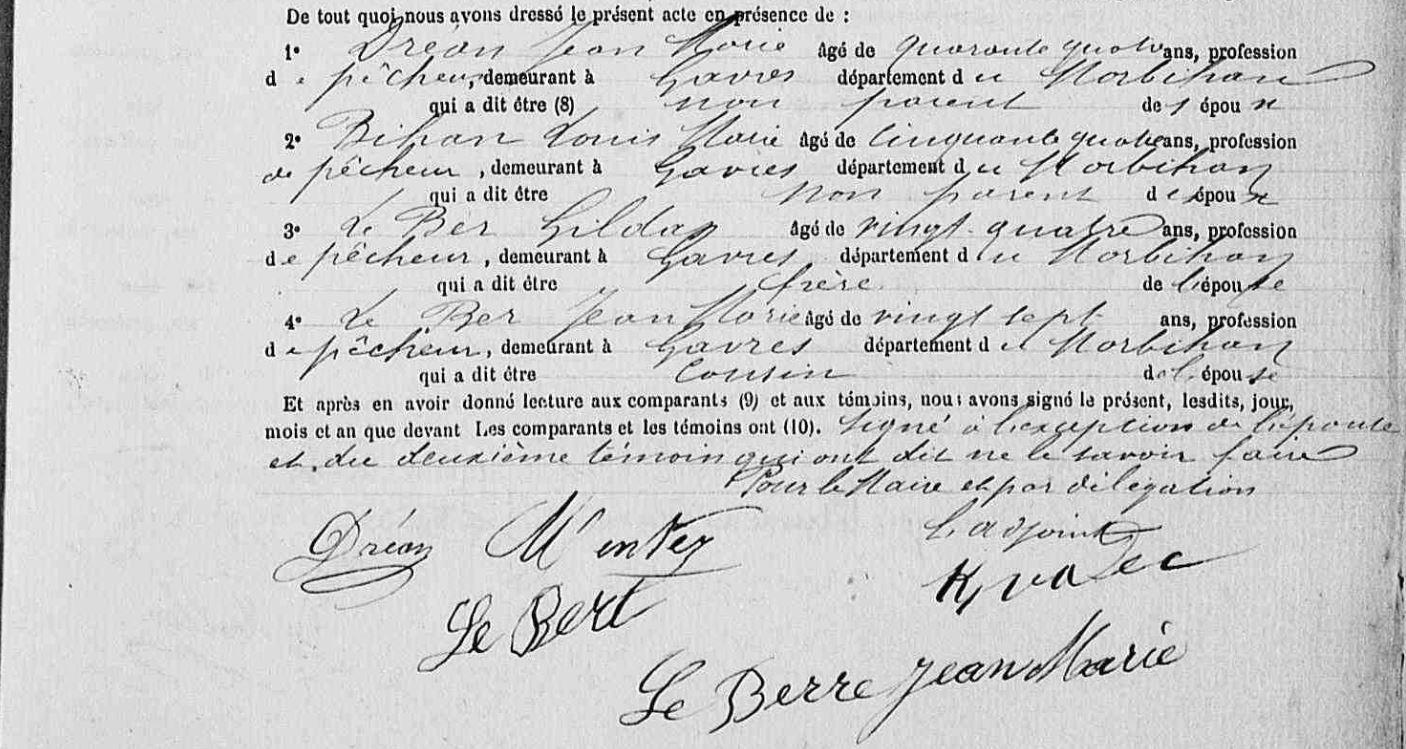 De tout quoi nous avons dressé le présent acte en présence de :
1° Dréan Jean Marie âgé de quarante quatre ans, profession
de pêcheur, demeurant à Gavres département du Morbihan
qui a dit être (8) non parent des époux
2° Bihan Louis Marie âgé de cinquante quatre ans, profession
de pêcheur, demeurant à Gavres département du Morbihan
qui a dit être non parent des époux
3° Le Ber Gildas âgé de vingt-quatre ans, profession
de pêcheur, demeurant à Gavres département du Morbihan
qui a dit être frère de l'épouse
4° Le Ber Jean Marie âgé de vingt sept ans, profession
de pêcheur, demeurant à Gavres département du Morbihan
qui a dit être Cousin de l'épouse
Et après en avoir donné lecture aux comparants (9) et aux témoins, nous avons signé le présent, lesdits, jour,
mois et an que devant Les comparants et les témoins ont (10). Signé à l'exception de l'épouse
et du deuxième témoin qui ont dit ne le savoir faire
Pour le Maire et par délégation
L'adjoint
Dréan
Le Bert
Le Berre Jean Marie